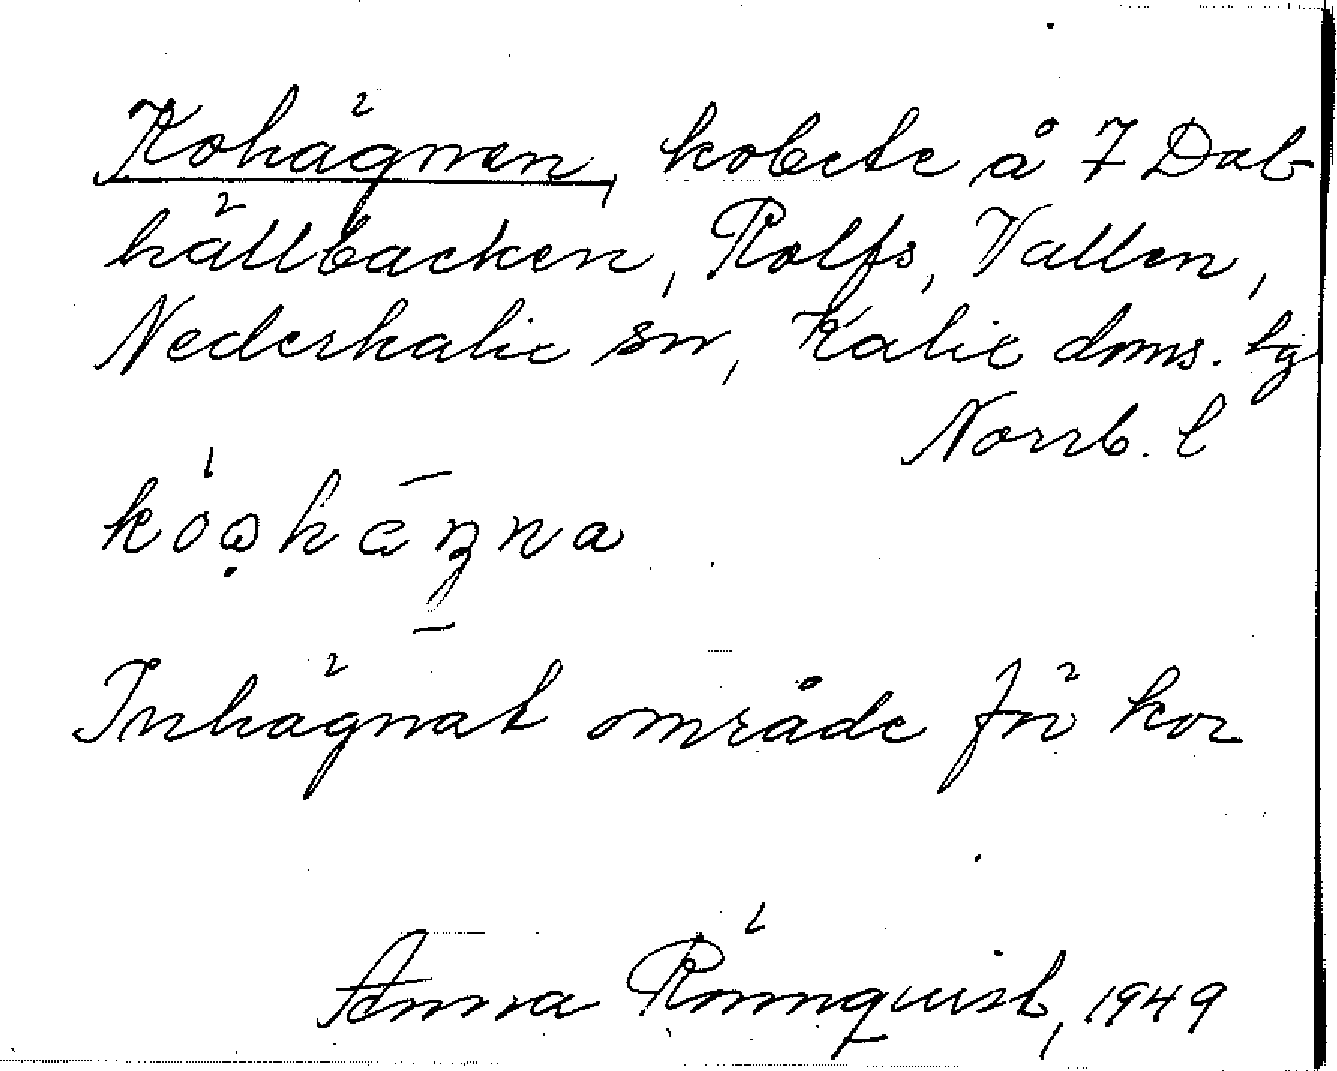 Kohägnen, kobete å 7 Dub-
hällbacken, Rolfs, Vallen,
Nederkalix sn, Kalix doms. tg
Norrb. l
Inhägnat område för kor
Anna Rönnquist, 1949